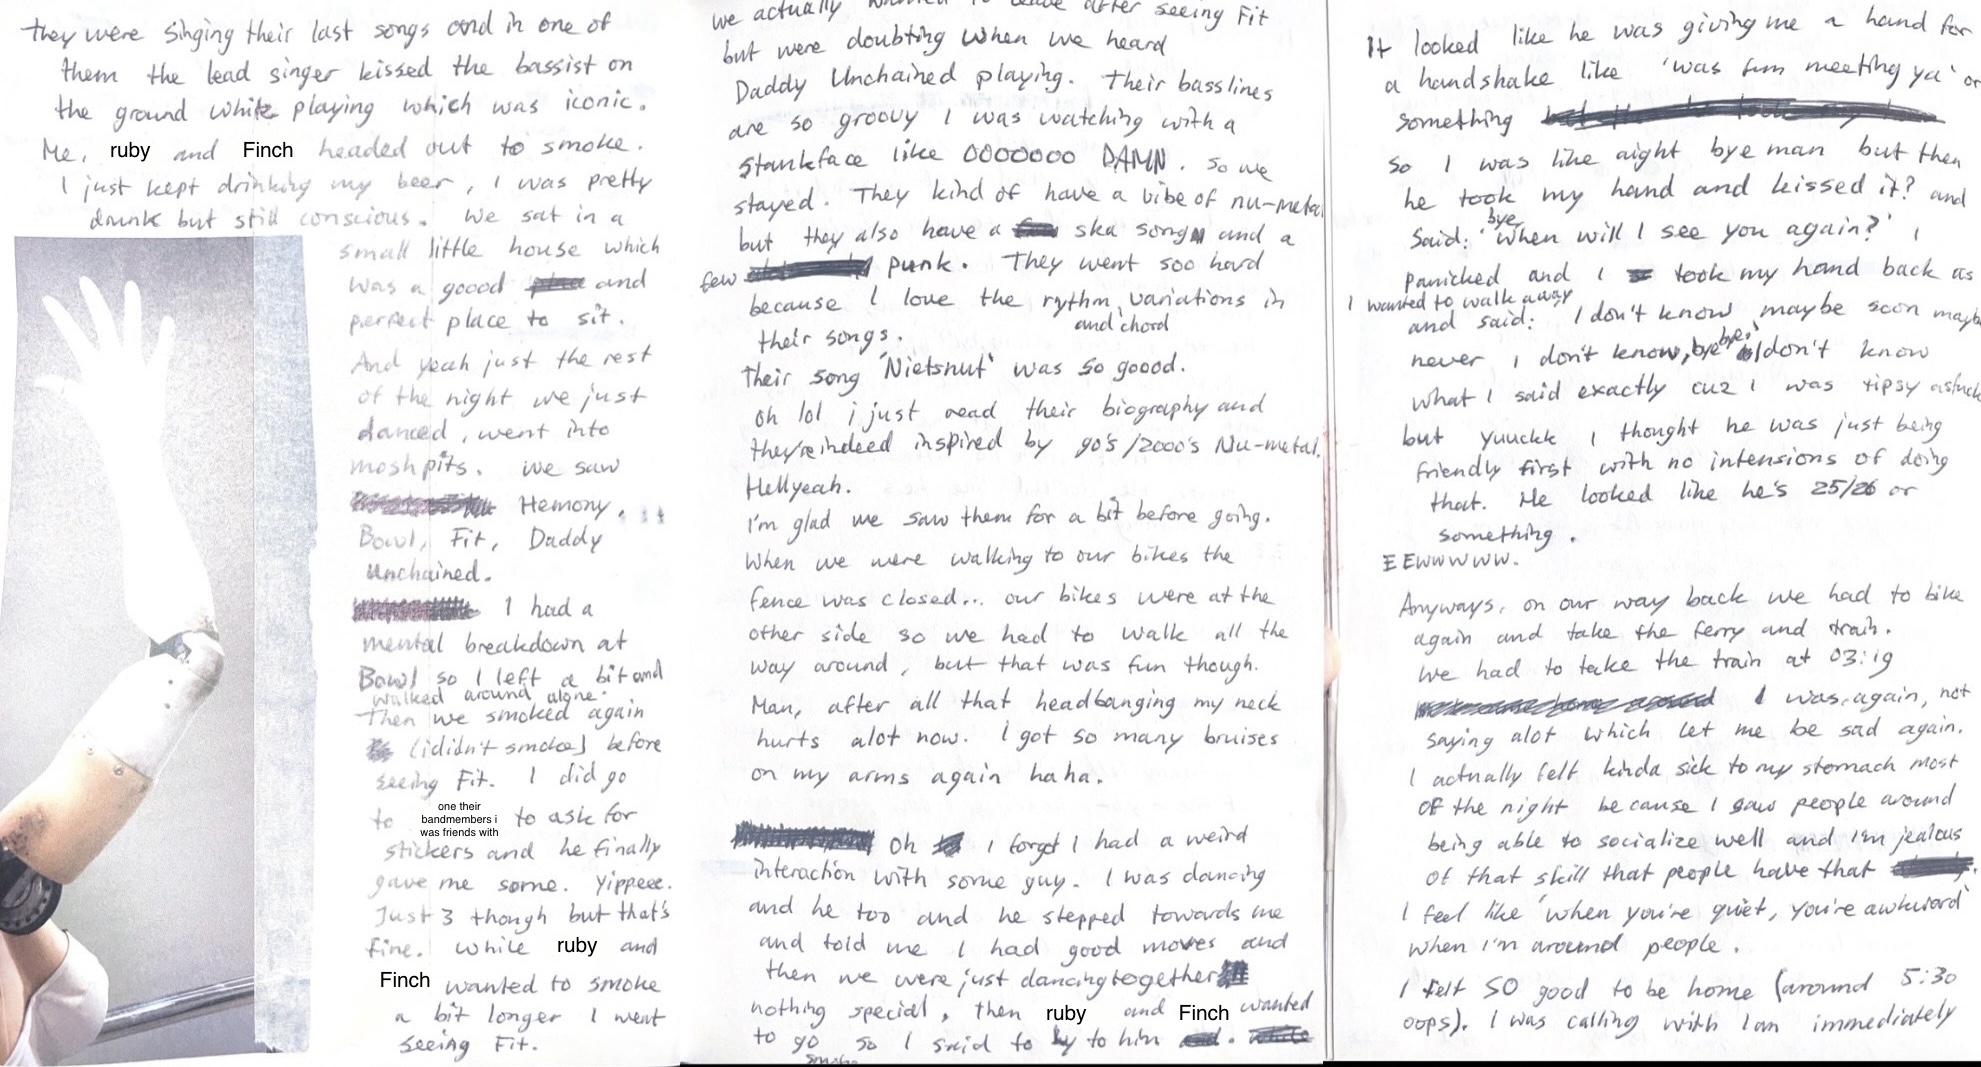 they were singing their last songs and in one of
them the lead singer kissed the bassist on
the ground while playing which was iconic.
Me, ruby and Finch headed out to smoke.
I just kept drinking my beer, I was pretty
drunk but still conscious. We sat in a
small little house which
was a goood and
perfect place to sit.
And yeah just the rest
of the night we just
danced, went into
moshpits. We saw
Hemony,
Bowl, Fit, Daddy
Unchained.
I had a
mental breakdown at
Bowl so I left a bit and
walked around alone.
Then we smoked again
(i didn't smoke) before
seeing Fit. I did go
to one their bandmembers i was friends with to ask for
stickers and he finally
gave me some. Yippeee.
Just 3 though but that's
fine. While ruby and
Finch wanted to smoke
a bit longer I went
seeing Fit.
we actually wanted to leave after seeing Fit
but were doubting when we heard
Daddy Unchained playing. Their basslines
are so groovy I was watching with a
stankface like OOOOOOO DAMN. So we
stayed. They kind of have a vibe of nu-metal
but they also have a ska song and a
few punk. They went soo hard
because I love the rythm variations in
and chord
their songs.
Their song 'Nietsnut' was so goood.
Oh lol i just read their biography and
they're indeed inspired by 90's/2000's Nu-metal.
Hellyeah.
I'm glad we saw them for a bit before going.
When we were walking to our bikes the
fence was closed... our bikes were at the
other side so we had to walk all the
way around, but that was fun though.
Man, after all that headbanging my neck
hurts alot now. I got so many bruises
on my arms again haha.
Oh I forgot I had a weird
interaction with some guy. I was dancing
and he too and he stepped towards me
and told me I had good moves and
then we were just dancing together
nothing special, then ruby and Finch wanted
to go so I said to by to him
smoke
It looked like he was giving me a hand for
a handshake like 'was fun meeting ya' or
something
so I was like aight bye man but then
he took my hand and kissed it? and
bye
said: 'When will I see you again?' I
panicked and I took my hand back as
I wanted to walk away
and said: I don't know maybe soon maybe
never I don't know, bye bye' I don't know
what I said exactly cuz I was tipsy asfuck
but yuuckk I thought he was just being
friendly first with no intensions of doing
that. He looked like he's 25/26 or
something.
EEwwwww.
Anyways, on our way back we had to bike
again and take the ferry and train.
We had to take the train at 03:19
I was, again, not
saying alot which let me be sad again.
I actually felt kinda sick to my stomach most
of the night because I saw people around
being able to socialize well and I'm jealous
of that skill that people have that
I feel like 'when you're quiet, you're awkward'
when I'm around people.
I felt SO good to be home (around 5:30
oops). I was calling with Ian immediately